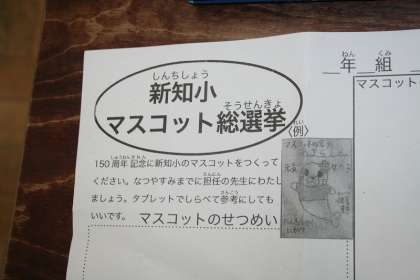 しんちしょう
新知小
そうせんきょ
マスコット総選挙
れい
〈例〉
ねん くみ
年 組
マスコット
しゅうねん きねん
150周年記念に新知小のマスコットをつくって
たんにん
ください。なつやすみまでに担任の先生にわたし
さんこう
ましょう。タブレットでしらべて参考にしても
いいです。 マスコットのせつめい